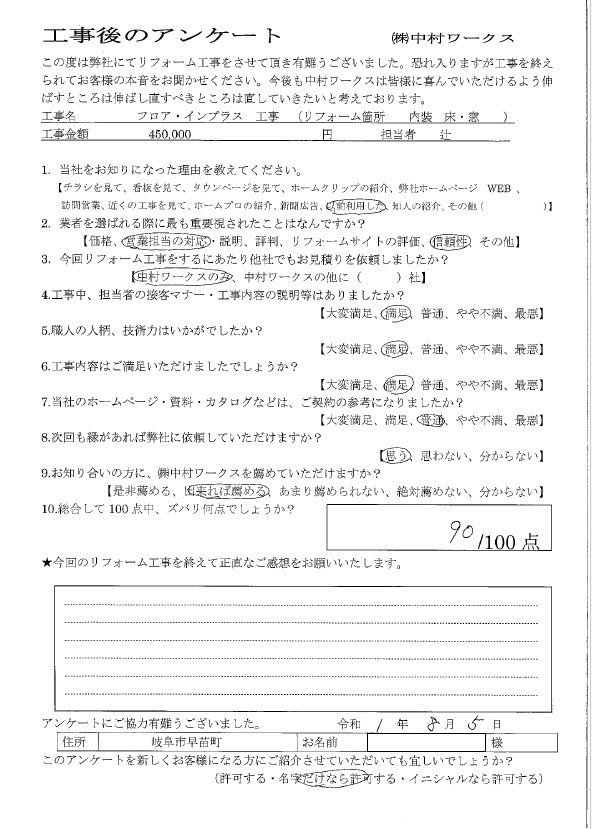 工事後のアンケート ㈱中村ワークス
この度は弊社にてリフォーム工事をさせて頂き有難うございました。恐れ入りますが工事を終え
られてお客様の本音をお聞かせください。今後も中村ワークスは皆様に喜んでいただけるよう伸
ばすところは伸ばし直すべきところは直していきたいと考えております。
工事名 フロア・インプラス 工事 (リフォーム箇所 内装 床・窓 )
工事金額 450,000 円 担当者 辻
1. 当社をお知りになった理由を教えてください。
【チラシを見て、看板を見て、タウンページを見て、ホームクリップの紹介、弊社ホームページ WEB、
訪問営業、近くの工事を見て、ホームプロの紹介、新聞広告、以前利用した、知人の紹介、その他( )】
2. 業者を選ばれる際に最も重要視されたことはなんですか?
【価格、営業担当の対応・説明、評判、リフォームサイトの評価、信頼性、その他】
3. 今回リフォーム工事をするにあたり他社でもお見積りを依頼しましたか?
【中村ワークスのみ、中村ワークスの他に( )社】
4.工事中、担当者の接客マナー・工事内容の説明等はありましたか?
【大変満足、満足、普通、やや不満、最悪】
5.職人の人柄、技術力はいかがでしたか?
【大変満足、満足、普通、やや不満、最悪】
6.工事内容はご満足いただけましたでしょうか?
【大変満足、満足、普通、やや不満、最悪】
7.当社のホームページ・資料・カタログなどは、ご契約の参考になりましたか?
【大変満足、満足、普通、やや不満、最悪】
8.次回も縁があれば弊社に依頼していただけますか?
【思う、思わない、分からない】
9.お知り合いの方に、㈱中村ワークスを薦めていただけますか?
【是非薦める、出来れば薦める、あまり薦められない、絶対薦めない、分からない】
10.総合して100点中、ズバリ何点でしょうか?
90/100点
★今回のリフォーム工事を終えて正直なご感想をお願いいたします。
アンケートにご協力有難うございました。 令和 1 年 8 月 5 日
住所 岐阜市早苗町 お名前 様
このアンケートを新しくお客様になる方にご紹介させていただいても宜しいでしょうか?
(許可する・名字だけなら許可する・イニシャルなら許可する)